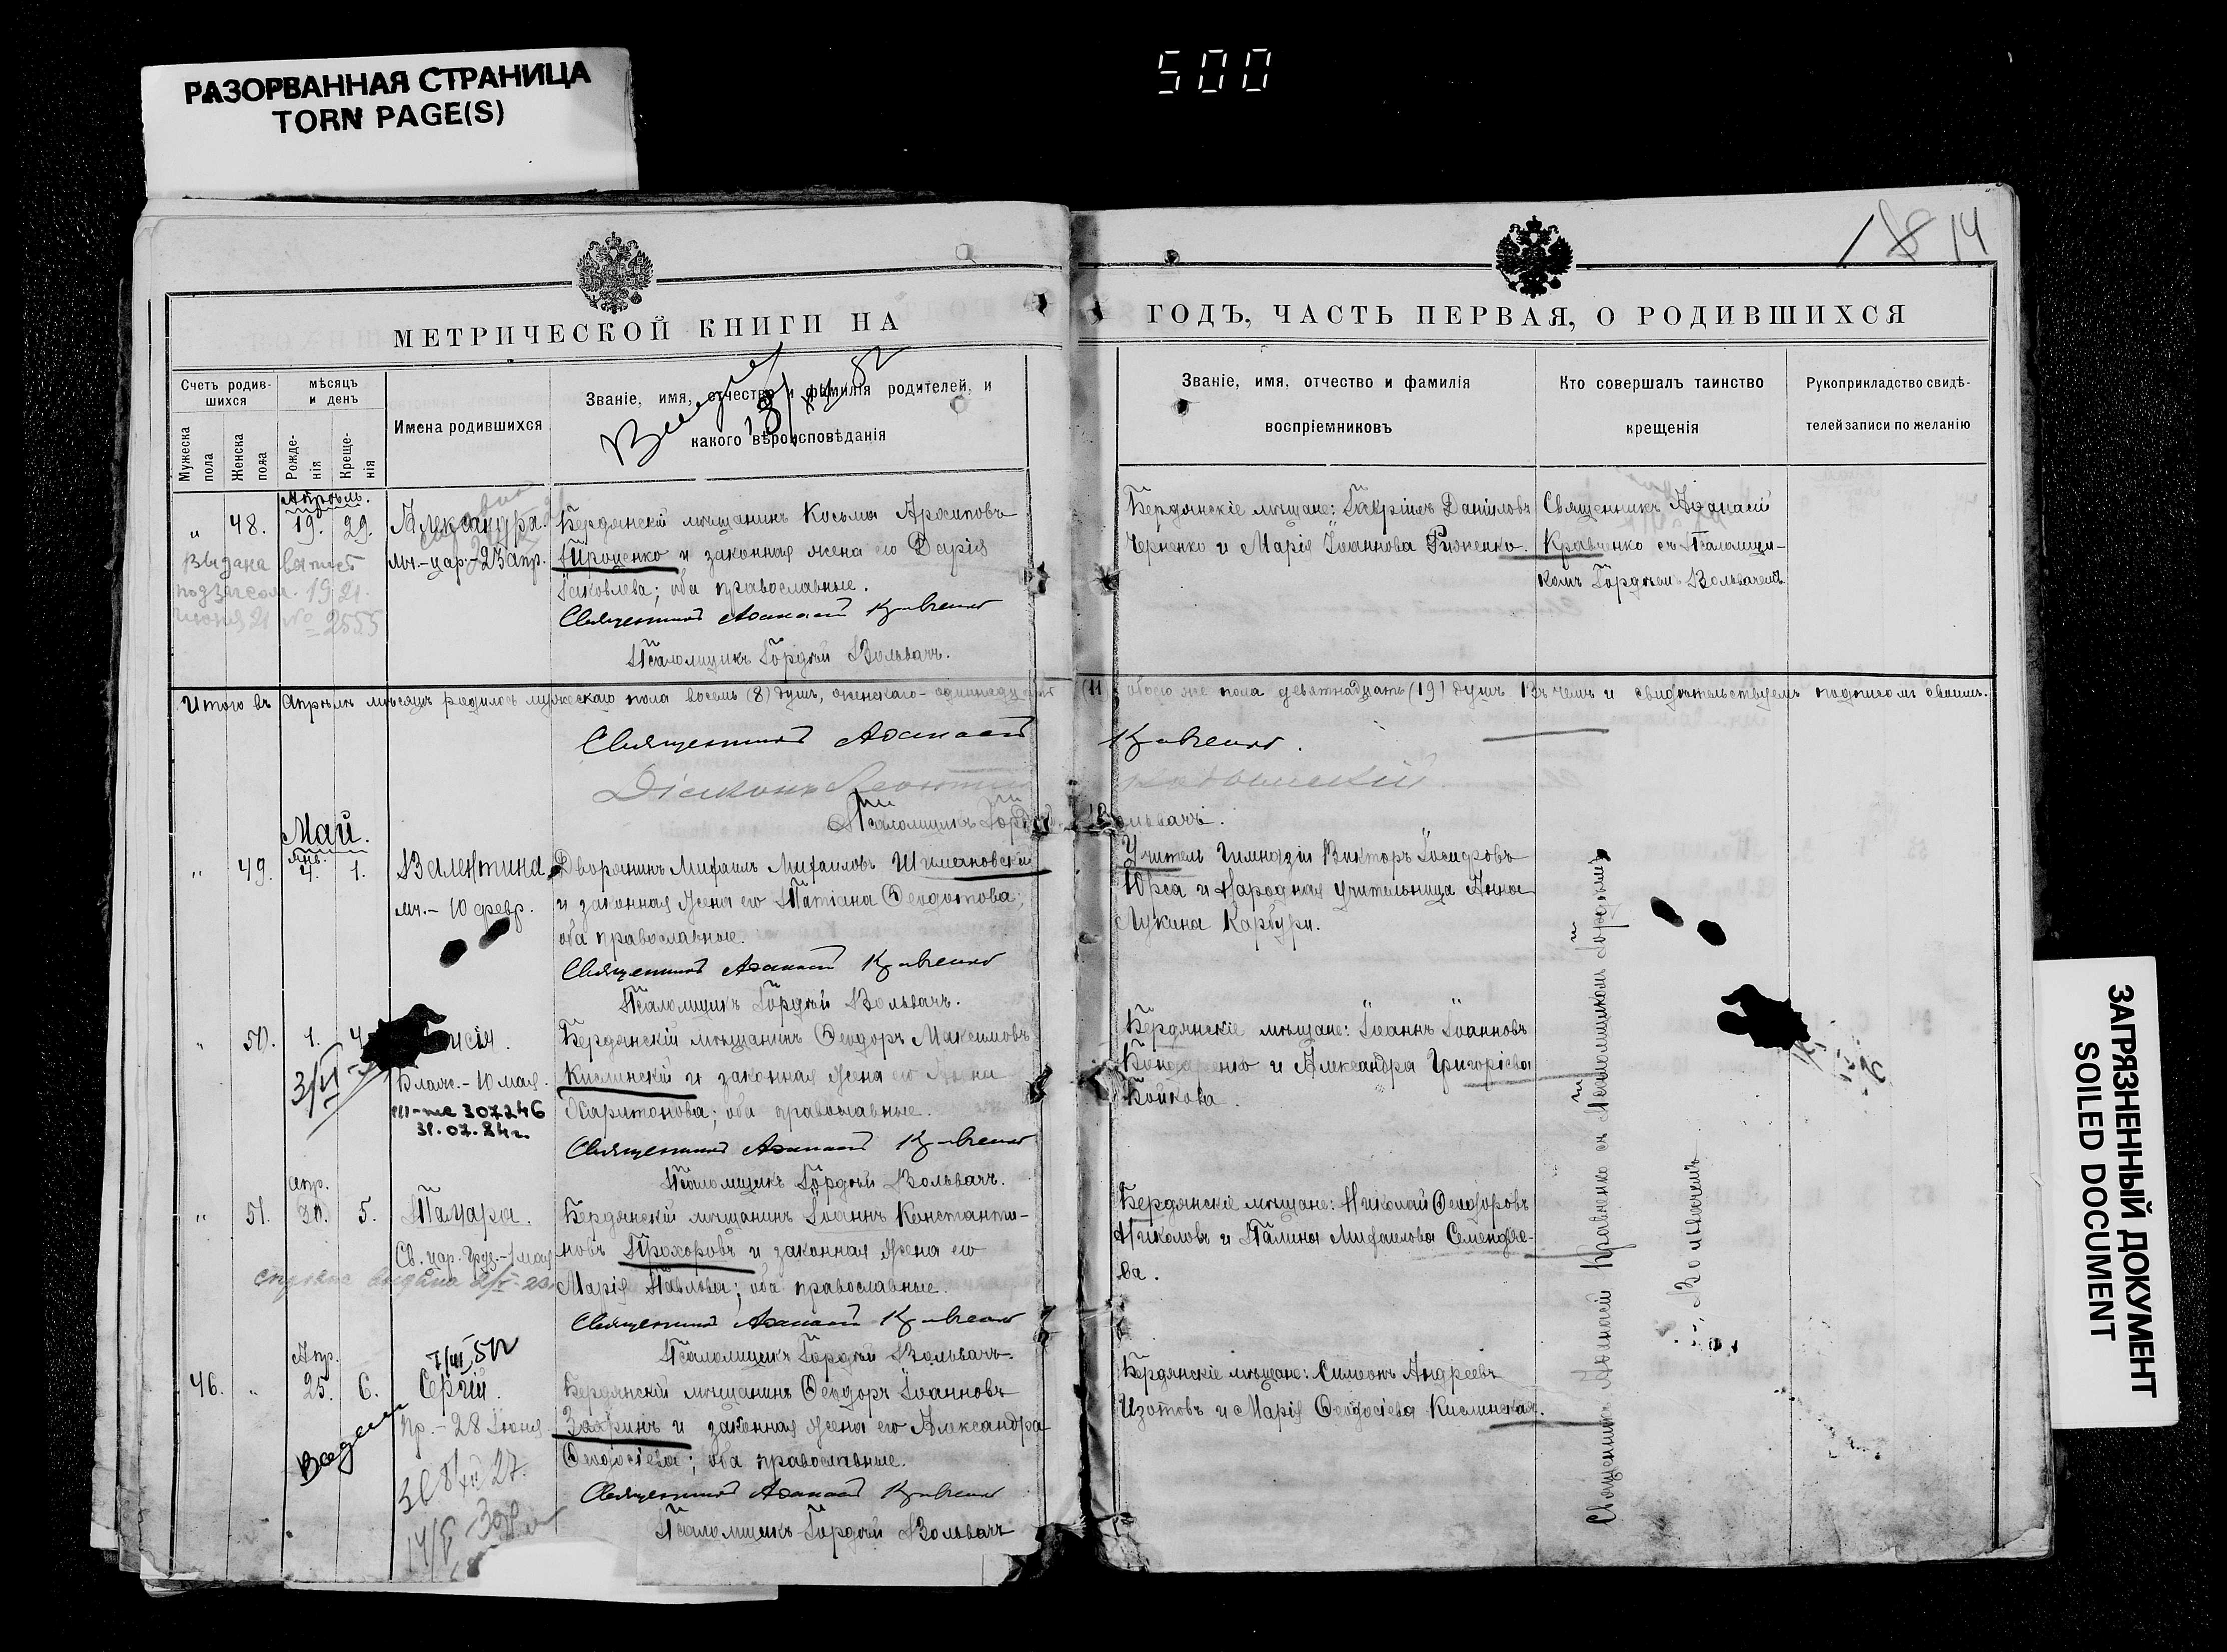 РАЗОРВАННАЯ СТРАНИЦА
TORN PAGE(S)
500
14
МЕТРИЧЕСКОЙ КНИГИ НА
ГОДЪ, ЧАСТЬ ПЕРВАЯ, О РОДИВШИХСЯ
Счетъ родив-
шихся
Мужеска
пола
Женска
пола
мѣсяцъ
и день
Рожде-
нія
Креще-
нія
Имена родившихся
Званіе, имя, отчество и фамилія родителей, и
какого вѣроисповѣданія
Званіе, имя, отчество и фамилія
воспріемниковъ
Кто совершалъ таинство
крещенія
Рукоприкладство свидѣ-
телей записи по желанію
Апрѣль.
" 48. 19. 29. Александра.
мч.-цар.-23 апр.
Выдана
1921.
№ 2555
Бердянскій мѣщанинъ Косьма
Проценко и законная жена его Дарія
Іаковлева; оба православные.
Священникъ Аѳанасій Кравченко
Псаломщикъ Гордѣй Вольвачъ.
Бердянскіе мѣщане: Гавріилъ Даніиловъ
Черненко и Марія Іоаннова
Священникъ Аѳанасій
Кравченко съ Псаломщи-
комъ Гордѣемъ Вольвачемъ.
Итого въ Апрѣлѣ мѣсяцѣ родилось мужескаго пола восемь (8) душъ, женскаго - одиннадцать (11) обоего же пола девятнадцать (19) душъ. Въ чемъ и свидѣтельствуемъ подписомъ своимъ.
Священникъ Аѳанасій Кравченко.
Діаконъ
Псаломщикъ Гордѣй Вольвачъ.
Май.
Янв.
" 49. 4. 1. Валентина
мч.- 10 февр.
Дворянинъ Михаилъ Михаиловъ Шимановскій
и законная жена его Татіана Ѳеодотова;
оба православные.
Священникъ Аѳанасій Кравченко
Псаломщикъ Гордѣй Вольвачъ.
Учитель Гимназіи Викторъ Іосифовъ
Юрса и Народная учительница Анна
Лукина Карбури.
" 50. 1. 4.
Блаж.- 10 мая.
307246
31.07.84г.
Бердянскій мѣщанинъ Ѳеодоръ Максимовъ
Кислинскій и законная жена его Анна
Харитонова; оба православные.
Священникъ Аѳанасій Кравченко
Псаломщикъ Гордѣй Вольвачъ.
Бердянскіе мѣщане: Іоаннъ Іоанновъ
Бондаренко и Александра Григоріева
Бойкова.
Апр.
" 51. 30. 5. Тамара.
Св. цар. Груз.-1 мая
справка выдана
Бердянскій мѣщанинъ Іоаннъ Константи-
новъ Прохоровъ и законная жена его
Марія Павлова; оба православные.
Священникъ Аѳанасій Кравченко
Псаломщикъ Гордѣй Вольвачъ.
Бердянскіе мѣщане: Николай Ѳеодоровъ
Николовъ и Галина Михаилова Семендяе-
ва.
Апр.
46. " 25. 6. Сергій.
пр.- 28 Іюня
Бердянскій мѣщанинъ Ѳеодоръ Іоанновъ
и законная жена его Александра
Ѳеодосіева; оба православные.
Священникъ Аѳанасій Кравченко
Псаломщикъ Гордѣй Вольвачъ
Бердянскіе мѣщане: Симеонъ Андреевъ
Изотовъ и Марія Ѳеодосіева Кислинская.
Священникъ Аѳанасій Кравченко съ Псаломщикомъ Гордѣемъ
Вольвачемъ
ЗАГРЯЗНЕННЫЙ ДОКУМЕНТ
SOILED DOCUMENT